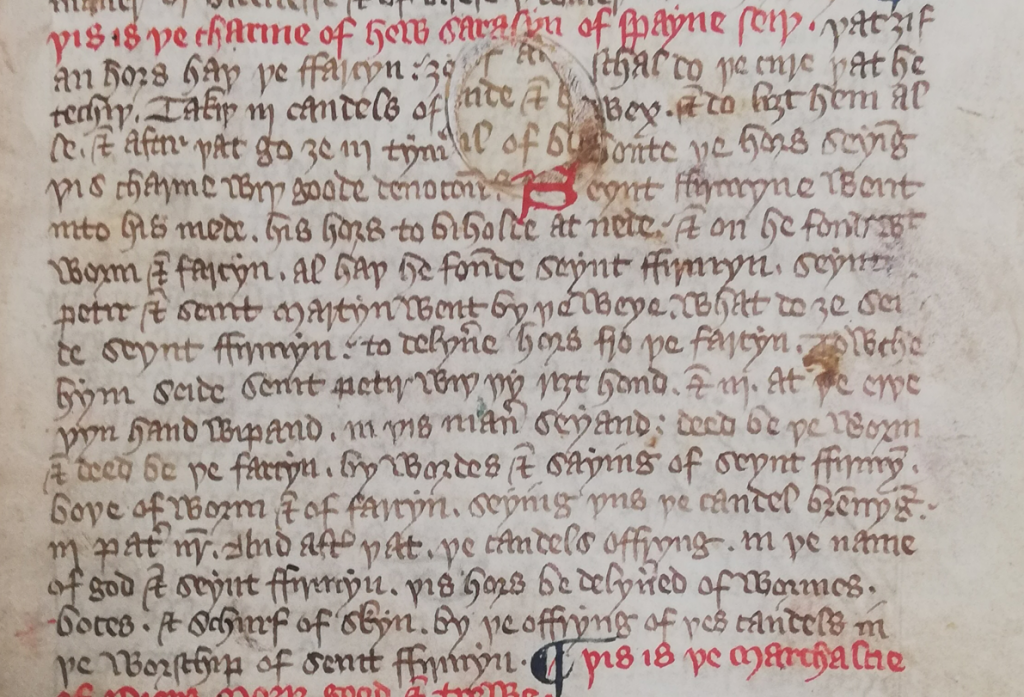 þis is þe charme of how sarasyn of spayne seiþ. þat ȝif
an hors haþ þe ffarcyn: schal do þe cure þat he
techiþ. Takiþ iij candels of wex. & do liȝt hem al
se. & aftir þat go ȝe iij tym al of boute þe hors seyīg
þis charme wiþ goode deuociou. Seynt ffirmyne went
into his mede. his hors to biholde at nede. & on he
worm & farcyn. al haþ he foūde seynt ffirmyn. seynt
petir & seint martyn went by þe weye. what do ȝe sei
de seynt ffirmyn: to delyūe hors fro þe farcyn.
hym seide seint petir wiþ þȳ riȝt hond. & iij. at þe erþe
þyn hand wipand. in þis man̄ seyand: deed be þe worm
& deed be þe farcyn. by wordes & saying of seynt ffirmȳ.
boþe of worm & of farcyn. seying þus þe candel brēnyḡ.
iij pat̄ nr̄. And aft̄ þat. þe candels offryng. in þe name
of god & seynt ffirmyn. þis hors be delyūed of wormes.
botes. & schurf of skyn. by þe offryng of þes candels in
þe worschip of seint ffirmyn. ¶ þis is þe marchalcie